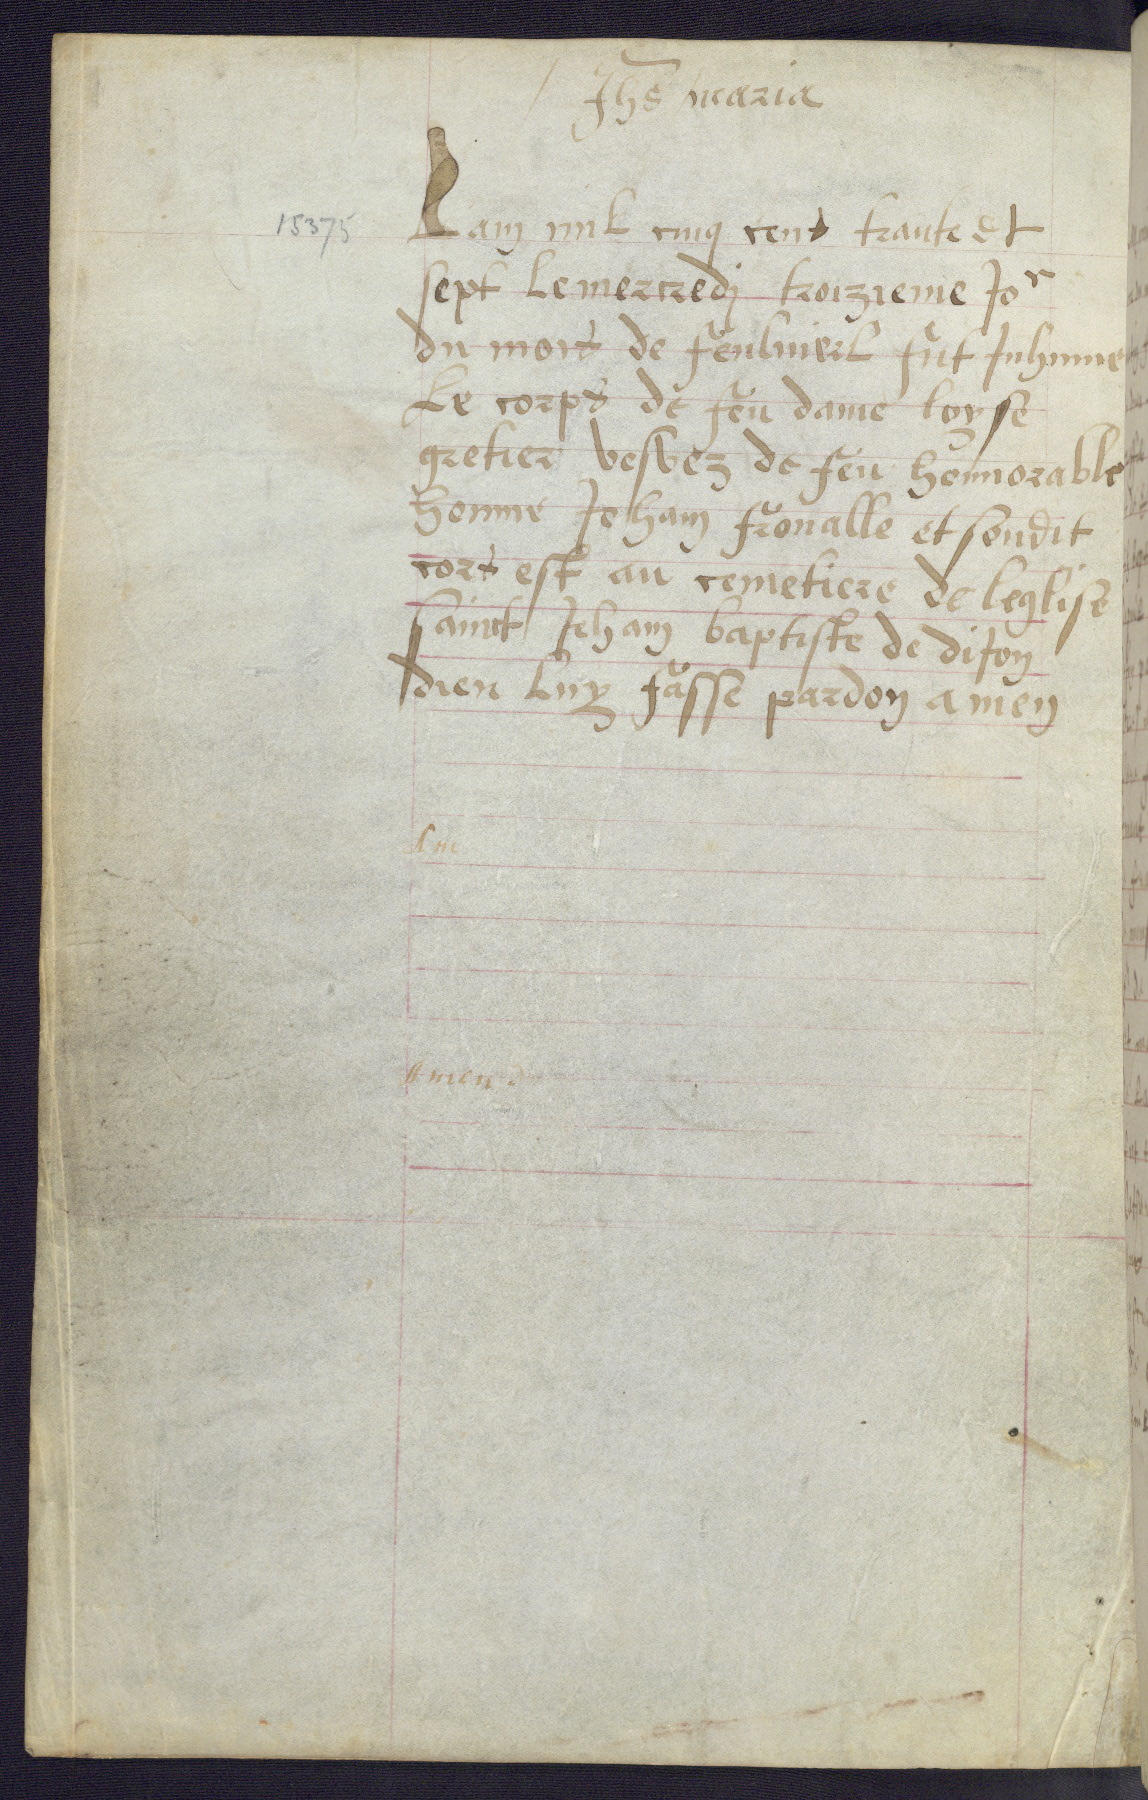 Jhs maria
15375
Lan mil cinq cens trante et
sept le mercredi troizieme jor
du mois de feubvierl fut inhume
Le corps de feu dame loyse
gretier vesvez de feu honnorable
homme Jehan fronalle et sondit
cors est au cemetiere de leglise
sainct Jehan baptiste de dijon
dieu luy fasse pardon amen
Amen